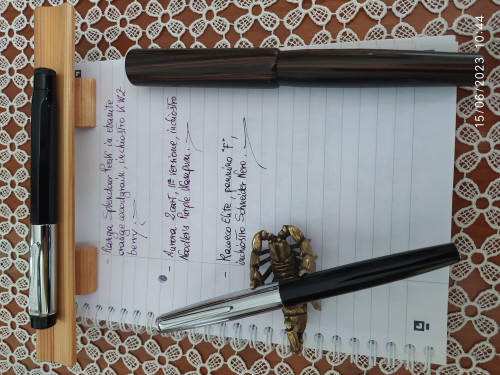 - Ranga Splendour in ebanite
orange woodgrain, inchiostro KWZ
berry ;
- Aurora 2cart, versione, inchiostro
Noodlers Purple Wampum ;
- Kaweco Elite, pennino "F",
inchiostro Schneider Nero.
15/06/2023 10:44